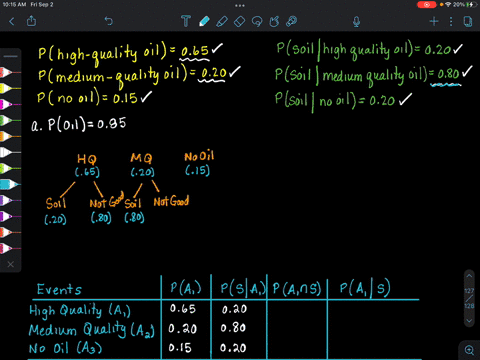 10:15 AM Fri Sep 2
P(high-quality oil) = 0.65 ✓
P(medium-quality oil) = 0.20 ✓
P(no oil) = 0.15 ✓
a. P(Oil) = 0.85
P(soil | high quality oil) = 0.20 ✓
P(soil | medium quality oil) = 0.80 ✓
P(soil | no oil) = 0.20 ✓
HQ MQ No Oil
(.65) (.20) (.15)
Soil Not Good Soil Not Good
(.20) (.80) (.80)
Events P(A₁) P(S|A₁) P(A₁∩S) P(A₁|S)
High Quality (A₁) 0.65 0.20
Medium Quality (A₂) 0.20 0.80
No Oil (A₃) 0.15 0.20
127
128